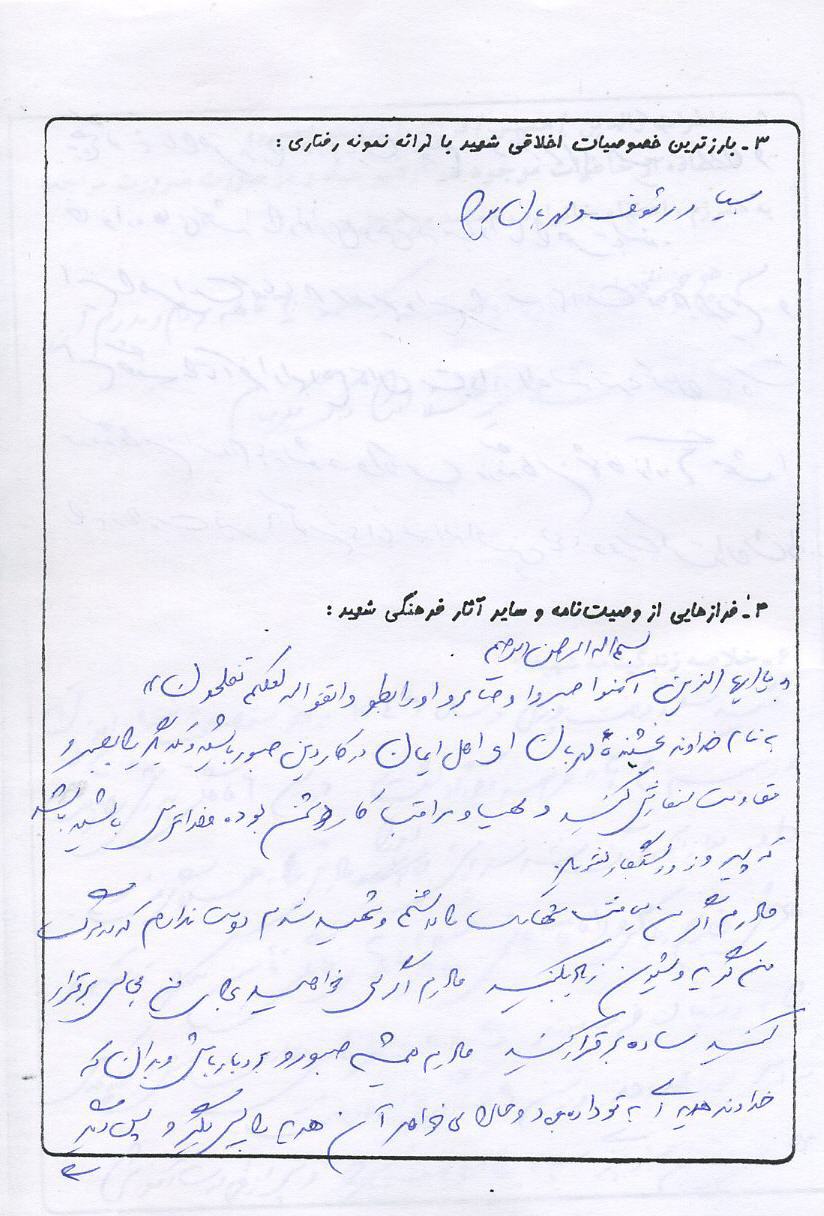 ۳ـ بارزترین خصوصیات اخلاقی شهید با ارائه نمونه رفتاری :
بسیار رئوف و مهربان بود
۴ـ فرازهایی از وصیت‌نامه و سایر آثار فرهنگی شهید :
بسم اله الرحمن الرحیم
« یا ایها الذین آمنوا صبروا و صابرو او رابطو و اتقو اله لعلکم تفلحون »
به نام خداوند بخشنده مهربان ای اهل ایمان در کار دین صبور باشید و یکدیگر را بصبر و
مقاومت سفارش کنید و مهیا و مراقب کار دشمن بوده و خداترس باشید باشد
که پیروز و رستگار شوید.
مادرم اگر من لیاقت شهادت را داشتم و شهید شدم دوست ندارم که در مرگ
من گریه و شیون زیاد بکنید مادرم اگر می خواهید برای من مجالس برقرار
کنید ساده برقرار کنید مادرم همیشه صبور و بردبار باش و بدان که
خداوند هدیه ای به تو داده بود و حالا می خواهد آن هدیه را پس بگیرد و پس